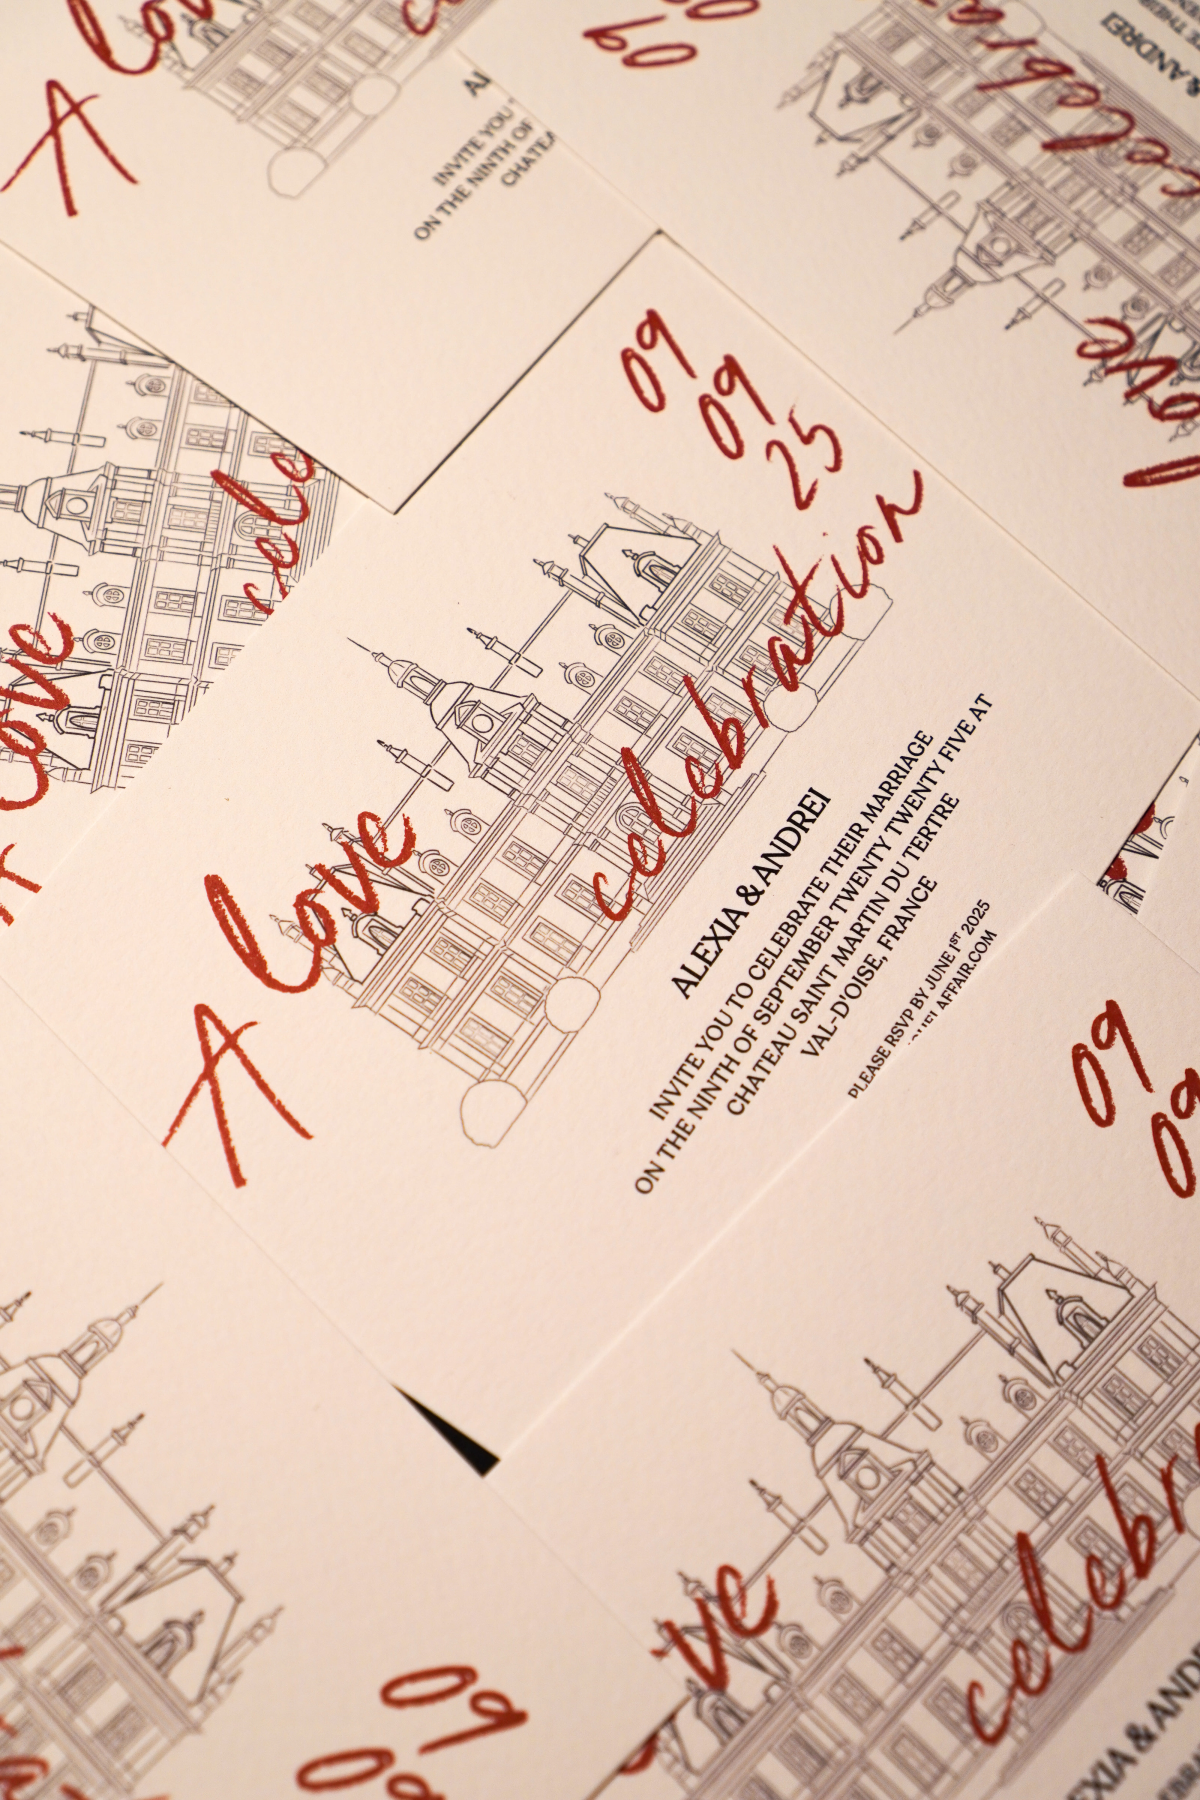 A love
celebration
09
09
25
ALEXIA & ANDREI
INVITE YOU TO CELEBRATE THEIR MARRIAGE
ON THE NINTH OF SEPTEMBER TWENTY TWENTY FIVE AT
CHATEAU SAINT MARTIN DU TERTRE
VAL-D'OISE, FRANCE
PLEASE RSVP BY JUNE 1ST 2025
AFFAIR.COM
A lov
INVITE YOU
ON THE NINTH OF
CHATEA
09
celebra
ove
& ANDREI
love
cele
09
09
ve
celebr
EXIA & AND
09
09